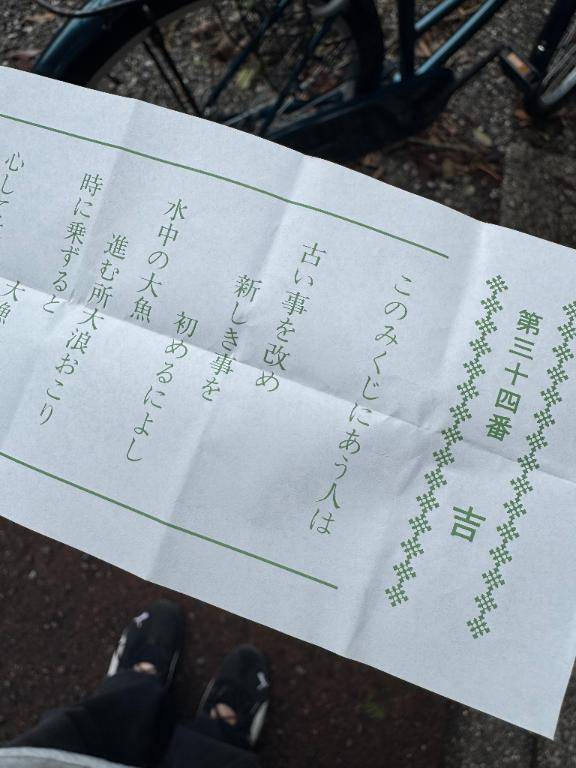 第三十四番 吉
このみくじにあう人は
古い事を改め
新しき事を
初めるによし
水中の大魚
進む所大浪おこり
時に乗ずると
心して
大魚